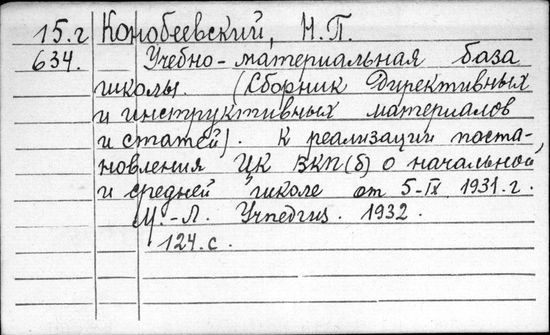 15.г Конобеевский, Н.П.
634. Учебно-материальная база
школы. (Сборник Директивных
и инструктивных материалов
и статей). К реализации поста-
новления ЦК ВКП(б) о начальной,
и средней школе от 5-IX 1931.г.
М.-Л. Учпедгиз. 1932.
124.с.